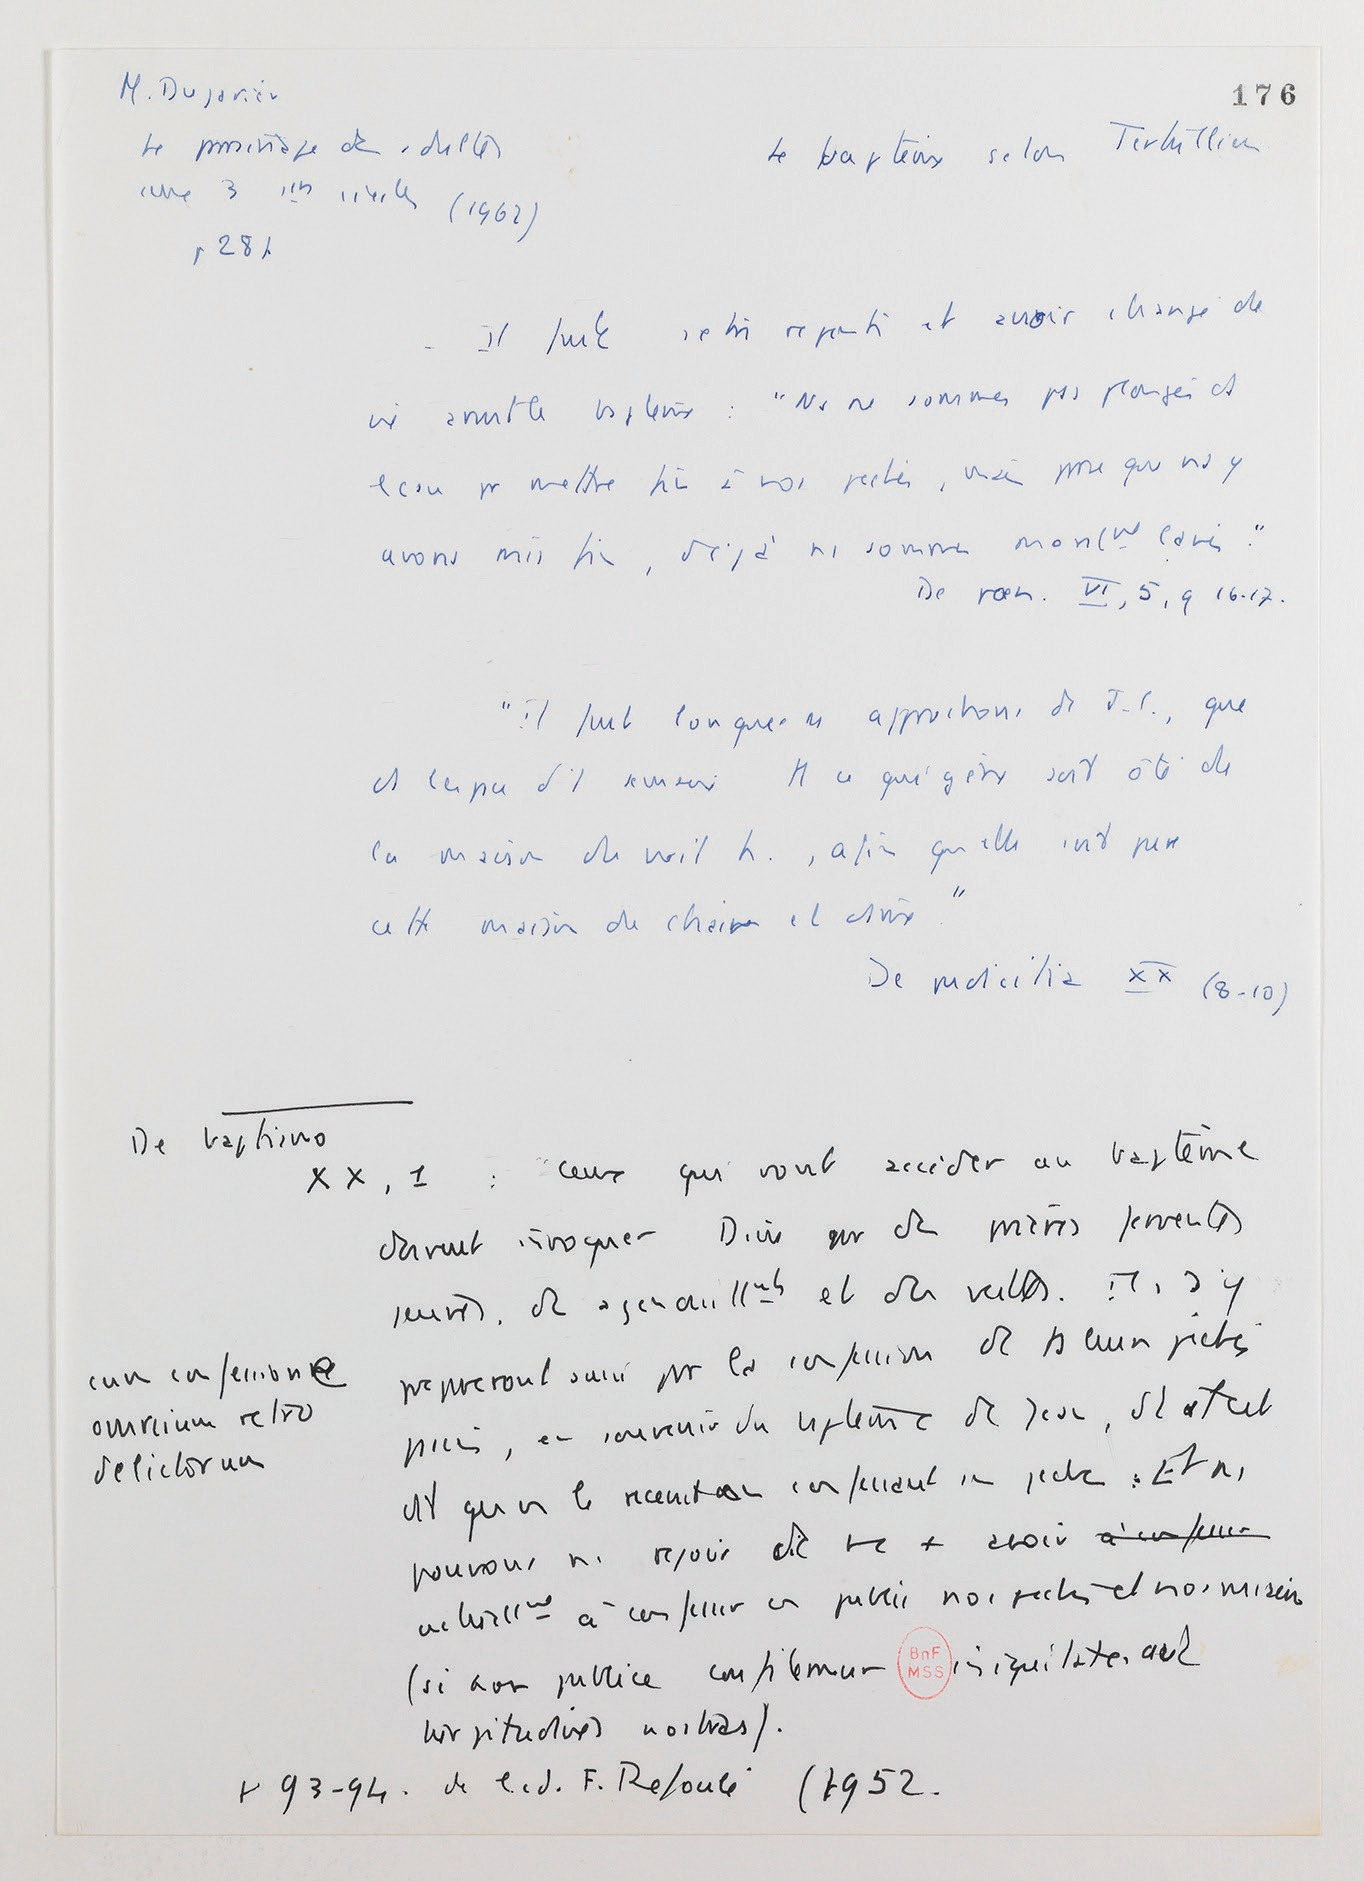 M. Dujarier
176
Le parrainage des adultes
aux 3 1ers siècles (1962)
p 281
Le baptême selon Tertullien
- Il faut s'etre repenti et avoir changé de
vie avant le baptême : "Ns ne sommes pas plongés ds
l'eau pr mettre fin à nos péchés, mais parce que ns y
avons mis fin, déjà ns sommes moralmt lavés."
De pœn. VI, 5, 9 16-17.
"Il faut lorsque ns approchons de J-C., que
ds qui gêne soit ôté de
la maison de , afin qu'elle soit
cette maison de chair et
De pudicitia XX (8-10)
De baptismo
XX, 1 : "Ceux qui vont accéder au baptême
doivent invoquer Dieu par des prières ferventes
jeunes, des agenouillmts et des veilles. Ils s'y
prépareront aussi par la confession de ts leurs péchés
passés, en souvenir du baptême de Jean, dt
dit qu'on le recevait en confessant ses péchés. Et ns
pouvons ns réjouir de + avoir à confesser
actuellmt à confesser en public nos péchés et nos misères
(si non publice confitemur iniquitates aut
turpitudines nostras).
cum confessione
omnium retro
delictorum
p 93-94. de l'éd. F. Refoulé (1952.
BnF
MSS